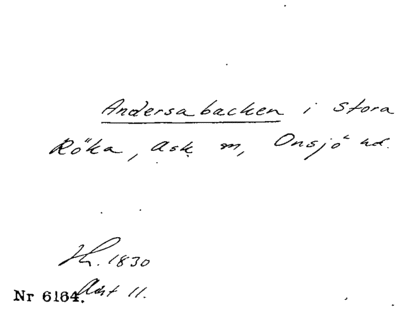 Andersabacken i Stora
Röka, Ask m, Onsjö hd.
H. 1830
Akt 11.
Nr 6164.